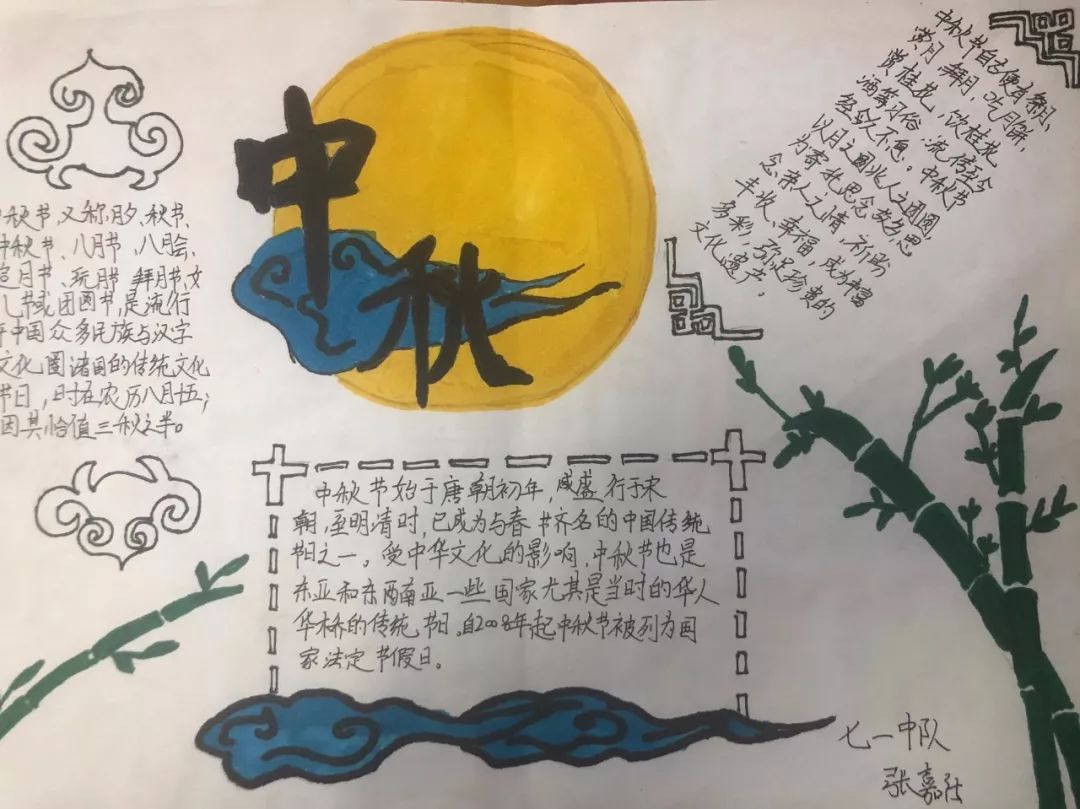 中秋
秋节、又称月夕、秋节、
中秋节、八月节、八月会、
追月节、玩月节 拜月节、女
儿节或团圆节，是流行
于中国众多民族与汉字
文化圈诸国的传统文化
节日，时在农历八月十五；
因其恰值三秋之半。
中秋节自古便有祭月、
赏月、拜月、吃月饼、
赏桂花、饮桂花
酒等习俗，流传至今
经久不息。中秋节
以月之圆兆人之团圆，
为寄托思念故乡，思
念亲人之情，祈盼
丰收、幸福，成为丰富
多彩，弥足珍贵的
文化遗产。
中秋节始于唐朝初年，盛行于宋
朝，至明清时，已成为与春节齐名的中国传统
节日之一。受中华文化的影响，中秋节也是
东亚和东南亚一些国家尤其是当时的华人
华桥的传统节日。自2008年起中秋节被列为国
家法定节假日。
七一中队
张嘉